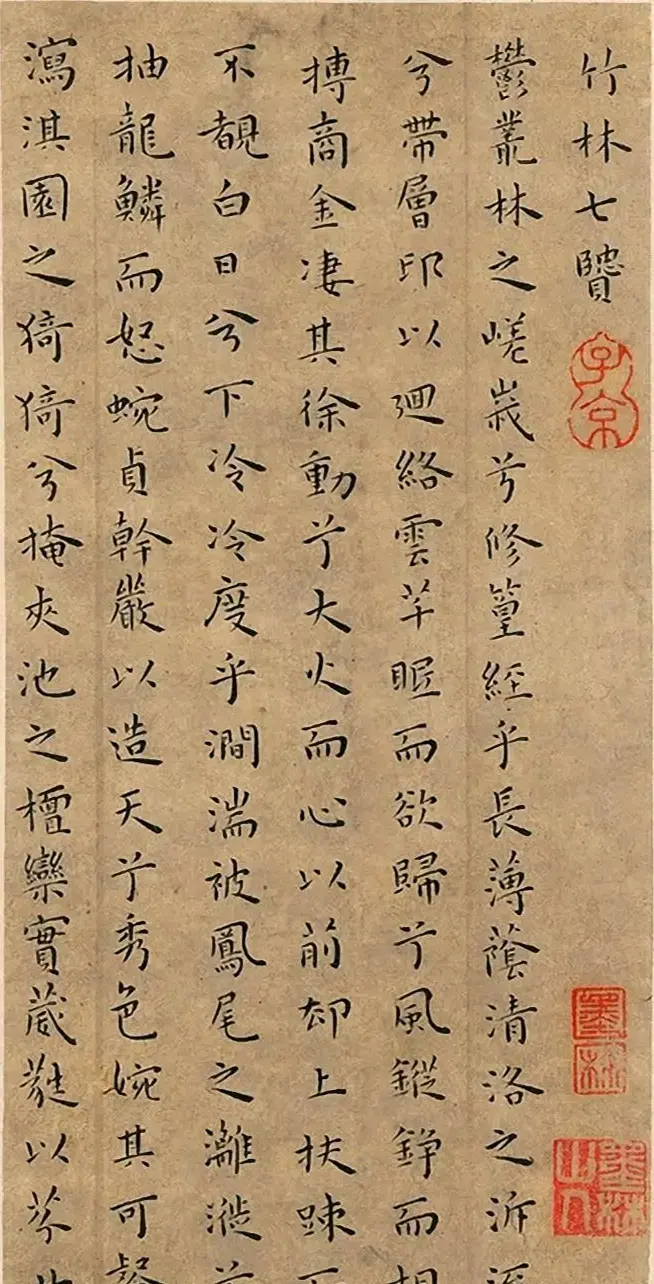 竹林七賢
子京
墨林
墨林山人
鬱叢林之嵯峩兮修篁經乎長薄蔭清洛之泝
兮帶層邙以迴絡雲芊眠而欲歸兮風鏦錚而相
搏商金凄其徐動兮大火而心以前却上扶踈而
不覩白日兮下冷冷度乎澗湍被鳳尾之灕漇兮
抽龍鱗而怒蜿貞幹嚴以造天兮秀色婉其可餐
瀉淇園之猗猗兮掩夾池之檀欒實葳蕤以芬